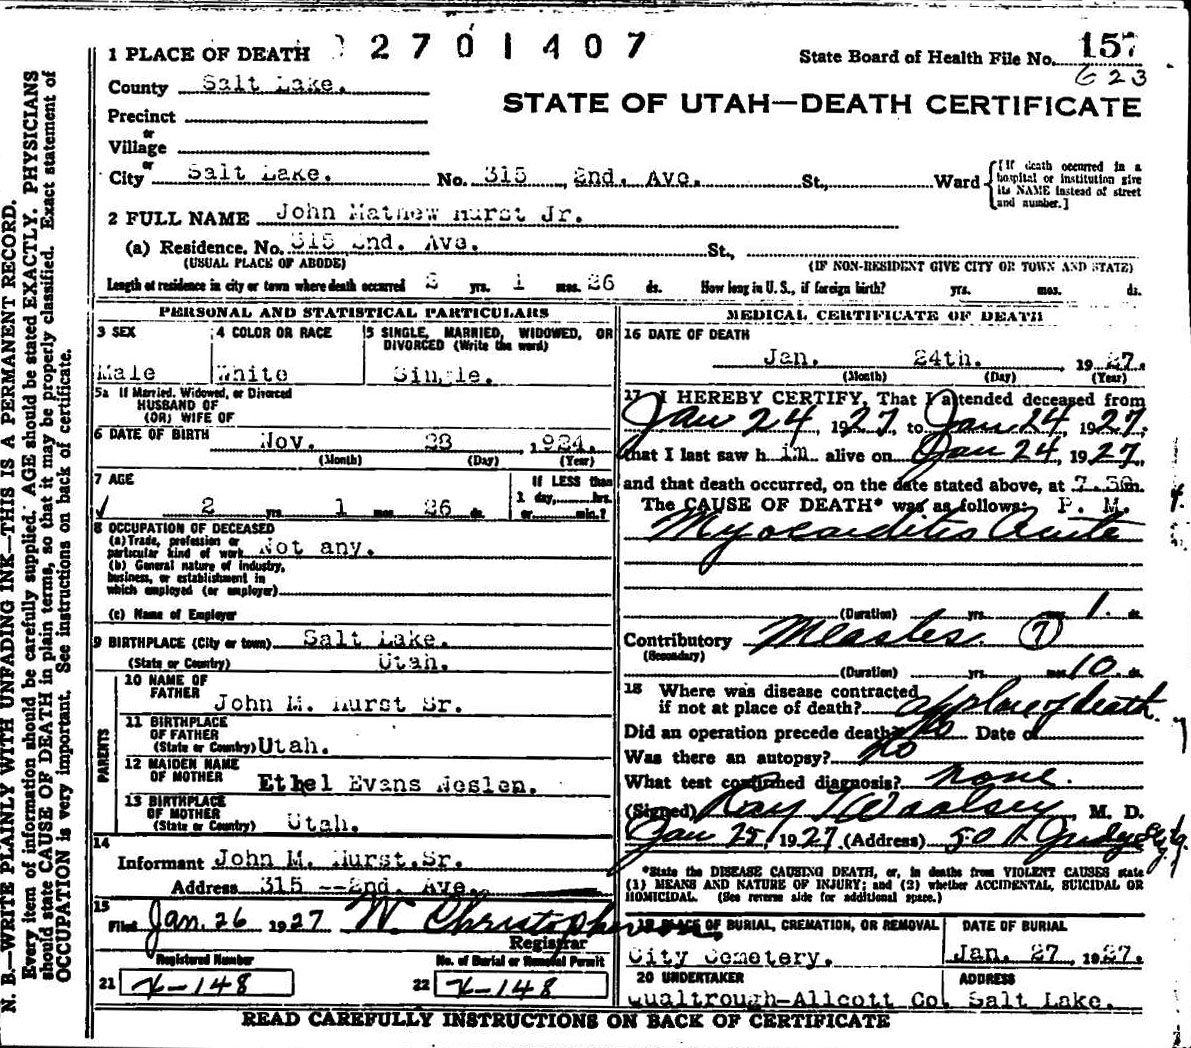 N. B.—WRITE PLAINLY WITH UNFADING INK—THIS IS A PERMANENT RECORD.
Every item of information should be carefully supplied. AGE should be stated EXACTLY. PHYSICIANS
should state CAUSE OF DEATH in plain terms, so that it may be properly classified. Exact statement of
OCCUPATION is very important. See instructions on back of certificate.
1 PLACE OF DEATH 2701407
State Board of Health File No. 157
623
County Salt Lake.
STATE OF UTAH—DEATH CERTIFICATE
Precinct
or
Village
or
City Salt Lake. No. 315, 2nd. Ave. St., Ward
[If death occurred in a
hospital or institution give
its NAME instead of street
and number.]
2 FULL NAME John Mathew Hurst Jr.
(a) Residence. No. 315 2nd. Ave. St.,
(USUAL PLACE OF ABODE) (IF NON-RESIDENT GIVE CITY OR TOWN AND STATE)
Length of residence in city or town where death occurred 2 yrs. 1 mos. 26 ds. How long in U. S., if foreign birth? yrs. mos. ds.
PERSONAL AND STATISTICAL PARTICULARS
3 SEX
Male
4 COLOR OR RACE
White
5 SINGLE, MARRIED, WIDOWED, OR
DIVORCED (Write the word)
Single.
5a If Married, Widowed, or Divorced
HUSBAND OF
(OR) WIFE OF
6 DATE OF BIRTH Nov. 28, 1924.
(Month) (Day) (Year)
7 AGE
2 yrs. 1 mos. 26 ds.
If LESS than
1 day, hrs.
or min.?
8 OCCUPATION OF DECEASED
(a) Trade, profession or
particular kind of work Not any.
(b) General nature of industry,
business, or establishment in
which employed (or employer)
(c) Name of Employer
9 BIRTHPLACE (City or town) Salt Lake.
(State or Country) Utah.
PARENTS
10 NAME OF
FATHER John M. Hurst Sr.
11 BIRTHPLACE
OF FATHER
(State or Country) Utah.
12 MAIDEN NAME
OF MOTHER Ethel Evans Neslen.
13 BIRTHPLACE
OF MOTHER
(State or Country) Utah.
14
Informant John M. Hurst.Sr.
Address 315 --2nd. Ave.
15
Filed Jan. 26 1927 W. Christopherson.
Registrar
Registered Number
21 X-148
No. of Burial or Removal Permit
22 X-148
MEDICAL CERTIFICATE OF DEATH
16 DATE OF DEATH
Jan. 24th. 1927.
(Month) (Day) (Year)
17 I HEREBY CERTIFY, That I attended deceased from
Jan 24, 1927, to Jan 24, 1927.
that I last saw h im alive on Jan 24, 1927,
and that death occurred, on the date stated above, at 7.30m.
The CAUSE OF DEATH* was as follows: P. M.
Myocarditis Acute
(Duration) yrs. mos. 1. ds.
Contributory Measles. (7)
(Secondary)
(Duration) yrs. mos. 10. ds.
18 Where was disease contracted
if not at place of death? at place of death.
Did an operation precede death? No Date of
Was there an autopsy? No
What test confirmed diagnosis? none.
(Signed) Ray T Woolsey, M. D.
Jan 25, 1927. (Address) Judge Bldg.
*State the DISEASE CAUSING DEATH, or, in deaths from VIOLENT CAUSES state
(1) MEANS AND NATURE OF INJURY; and (2) whether ACCIDENTAL, SUICIDAL OR
HOMICIDAL. (See reverse side for additional space.)
19 PLACE OF BURIAL, CREMATION, OR REMOVAL
City Cemetery.
DATE OF BURIAL
Jan. 27, 1927.
20 UNDERTAKER
Qualtrough-Allcott Co.
ADDRESS
Salt Lake.
READ CAREFULLY INSTRUCTIONS ON BACK OF CERTIFICATE